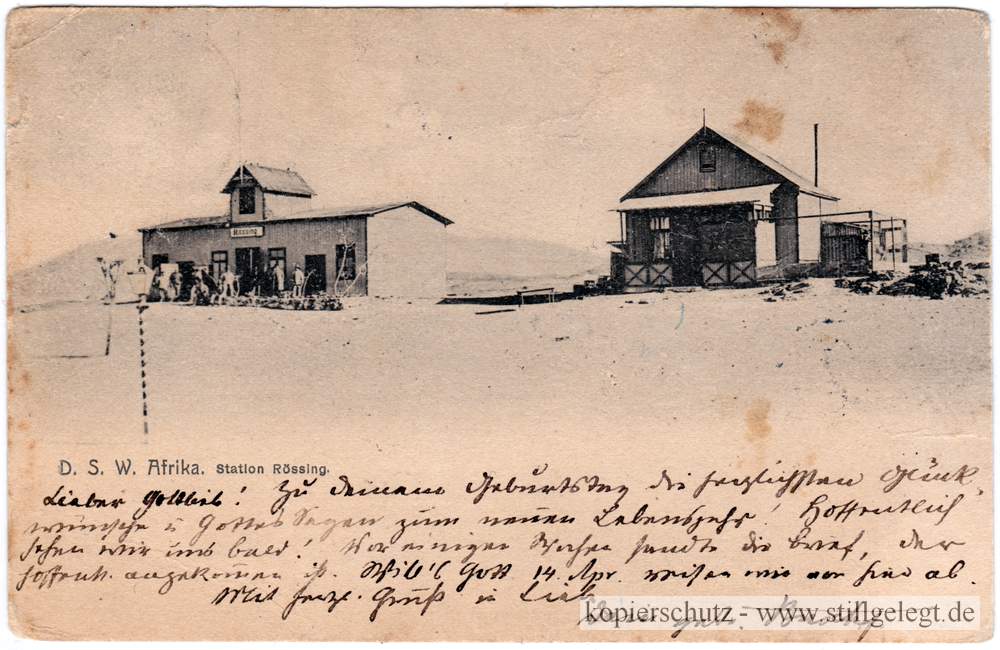 Rössing
D. S. W. Afrika. Station Rössing.
Lieber Gottlieb! Zu deinem Geburtstag die herzlichsten Glück-
wünsche u Gottes Segen zum neuen Lebensjahr! Hoffentlich
sehen wir uns bald! Vor einigen Wochen sandte die Brief, der
hoffentl. angekommen ist. Will's Gott 14. Apr. reisen wir von hier ab.
Mit herzl. Gruß u Liebe
kopierschutz - www.stillgelegt.de